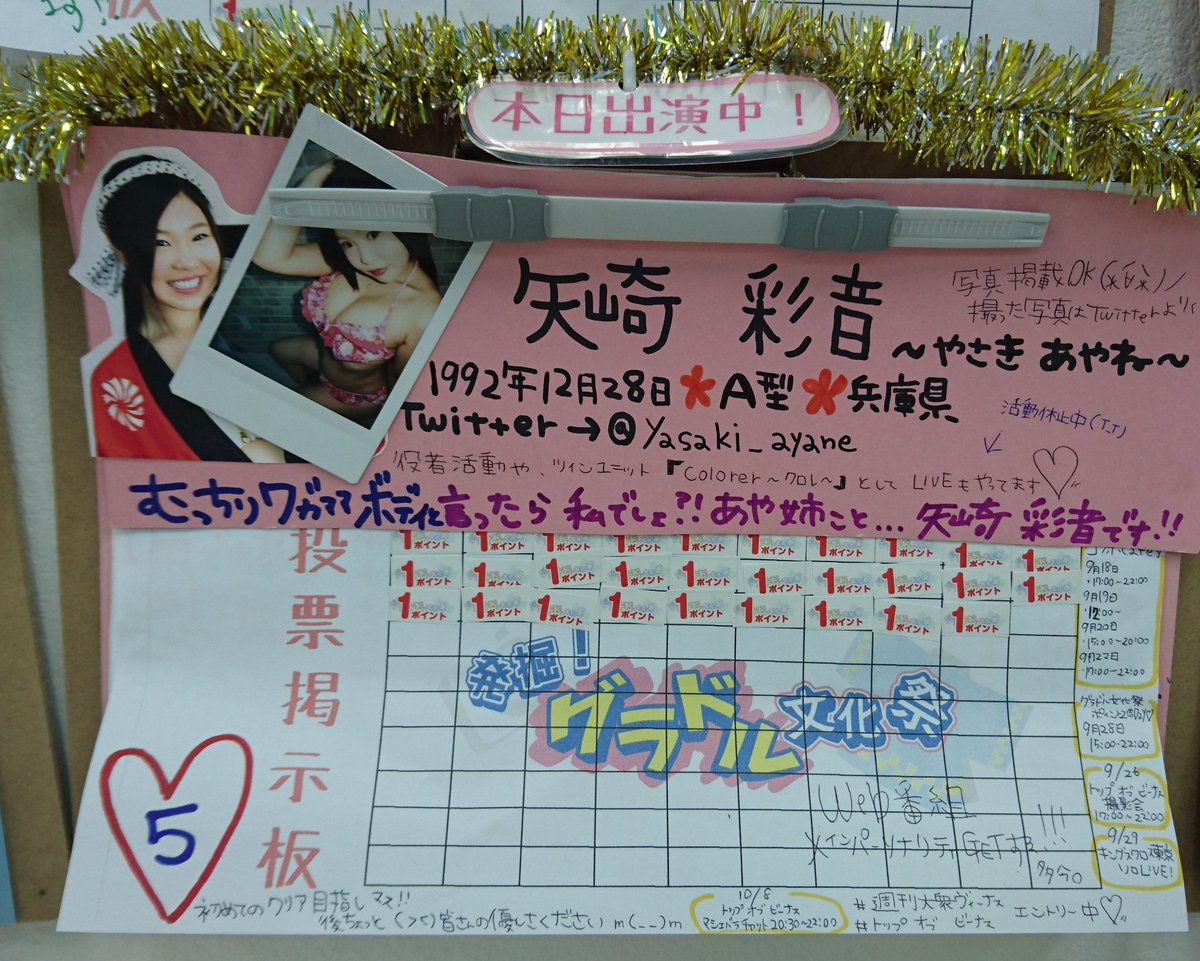 本日出演中！
矢崎 彩音
～やさき あやね～
写真掲載OK
撮った写真はTwitterより
1992年12月28日 A型 兵庫県
Twitter→@Yasaki_ayane
活動休止中(T.T)
役者活動や、ツインユニット『Colorer～クロレ～』として LIVEもやってます♡
むっちりワガママボディと言ったら私でしょ?!あや姉こと…矢崎 彩音です!!
投票掲示板
1ポイント 1ポイント 1ポイント 1ポイント 1ポイント 1ポイント 1ポイント 1ポイント 1ポイント 1ポイント
1ポイント 1ポイント 1ポイント 1ポイント 1ポイント 1ポイント 1ポイント 1ポイント 1ポイント 1ポイント
1ポイント 1ポイント 1ポイント 1ポイント 1ポイント 1ポイント 1ポイント 1ポイント 1ポイント
9月18日
・17:00~22:00
9月19日
・12:00~
9月20日
・15:00~20:00
9月22日
・17:00~22:00
発掘！
グラドル文化祭
グラドル文化祭
9月28日
15:00~22:00
9/26
トップ オブ ビーナス
撮影会
17:00~22:00
9/29
キングスクロス東京
ソロLIVE!
Web番組
メインパーソナリティGETする!!!
5
初めてのクリア目指してます!!
後ちょっと(>_<)皆さんの優しさください m(_ _)m
10/8
トップ オブ ビーナス
マシェバラチャット 20:30~22:00
#週刊大衆ヴィーナス
#トップ オブ ビーナス
エントリー中♡